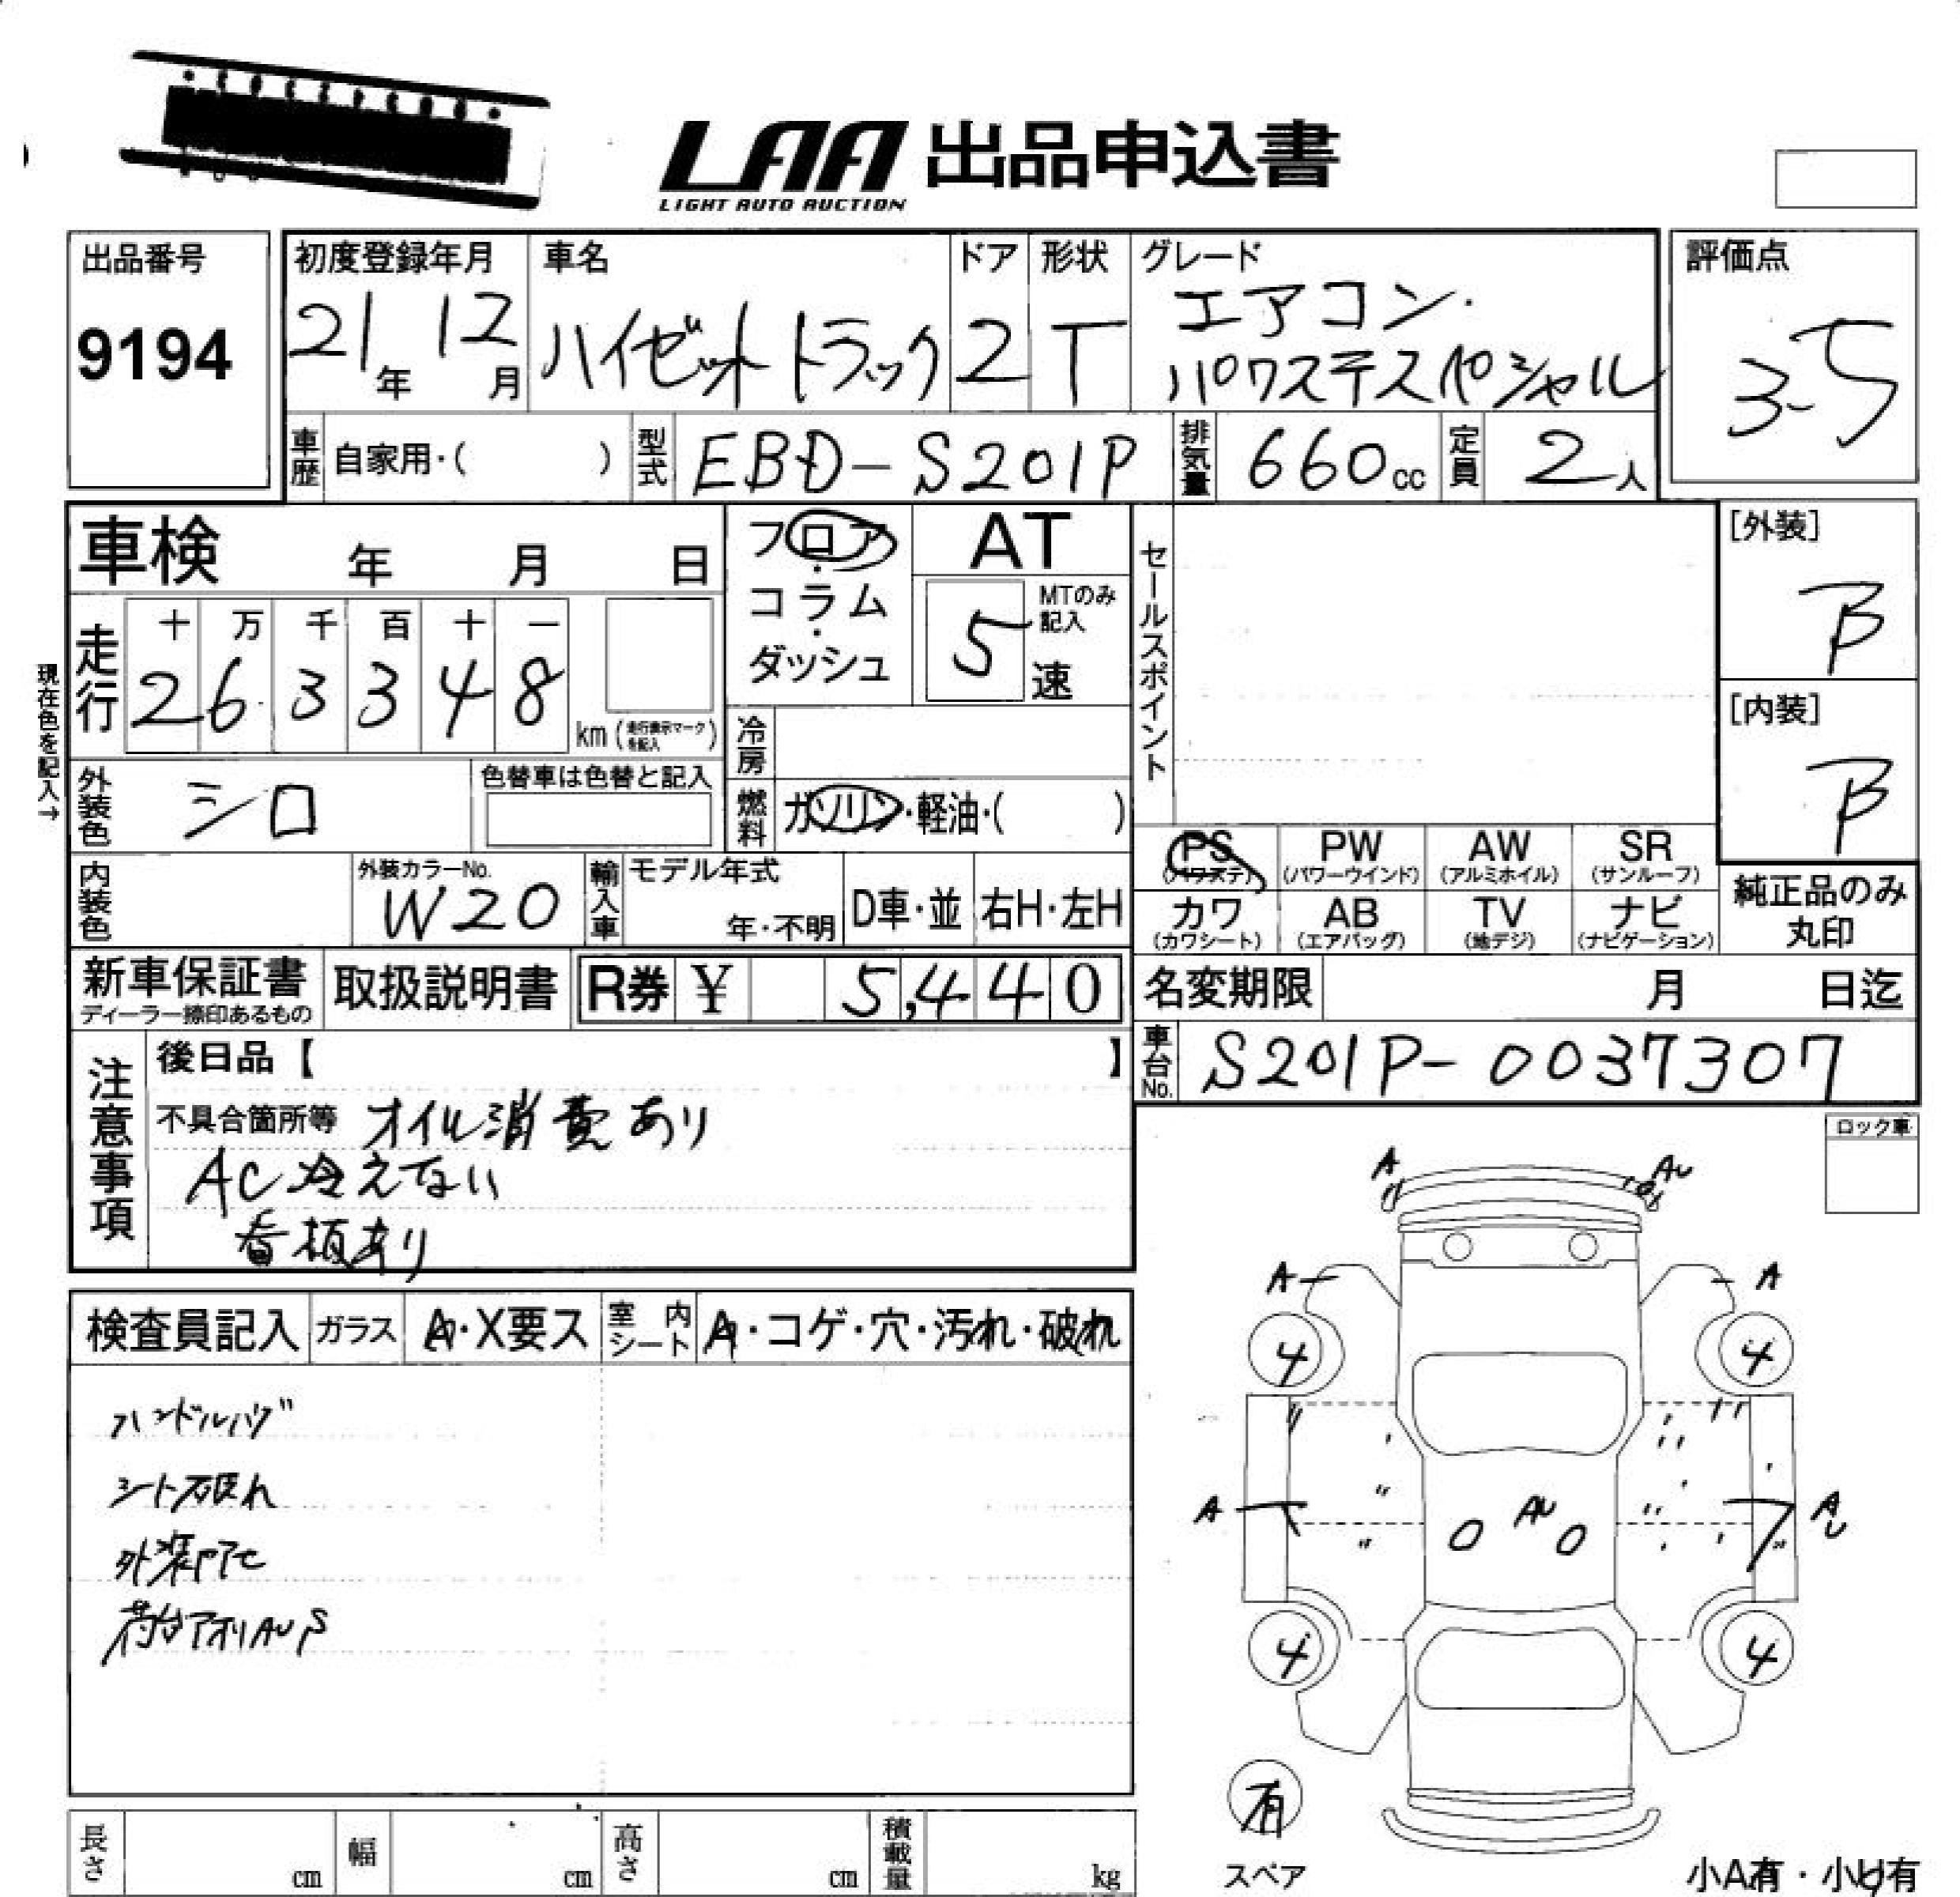 LAA 出品申込書
LIGHT AUTO AUCTION
出品番号
9194
初度登録年月
21年 12月
車名
ハイゼットトラック
ドア
2
形状
T
グレード
エアコン・
パワステスペシャル
評価点
3-5
車歴 自家用・( )
型式 EBD-S201P
排気量 660cc
定員 2人
車検 年 月 日
フロア・
コラム・
ダッシュ
AT
MTのみ記入
5速
セールスポイント
[外装]
B
[内装]
B
走行
十 万 千 百 十 一
2 6 3 3 4 8
km (走行表示マークを記入)
現在色を記入→
冷房
外装色 シロ
色替車は色替と記入
燃料 ガソリン・軽油・( )
PS (パワステ)
PW (パワーウインド)
AW (アルミホイル)
SR (サンルーフ)
カワ (カワシート)
AB (エアバッグ)
TV (地デジ)
ナビ (ナビゲーション)
純正品のみ
丸印
内装色
外装カラーNo.
W20
輸入車
モデル年式
年・不明
D車・並
右H・左H
新車保証書
ディーラー捺印あるもの
取扱説明書
R券 ¥ 5,440
名変期限 月 日迄
車台No. S201P-0037307
注意事項
後日品【 】
不具合箇所等 オイル消費あり
AC冷えない
看板あり
ロック車
検査員記入
ガラス A・X要ス
室内シート A・コゲ・穴・汚れ・破れ
ハンドルハゲ
シート破れ
荷台アオリAUS
A
AU
A
A
4
4
A
AU
A
4
4
有
スペア
小A有・小U有
長さ cm
幅 cm
高さ cm
積載量 kg